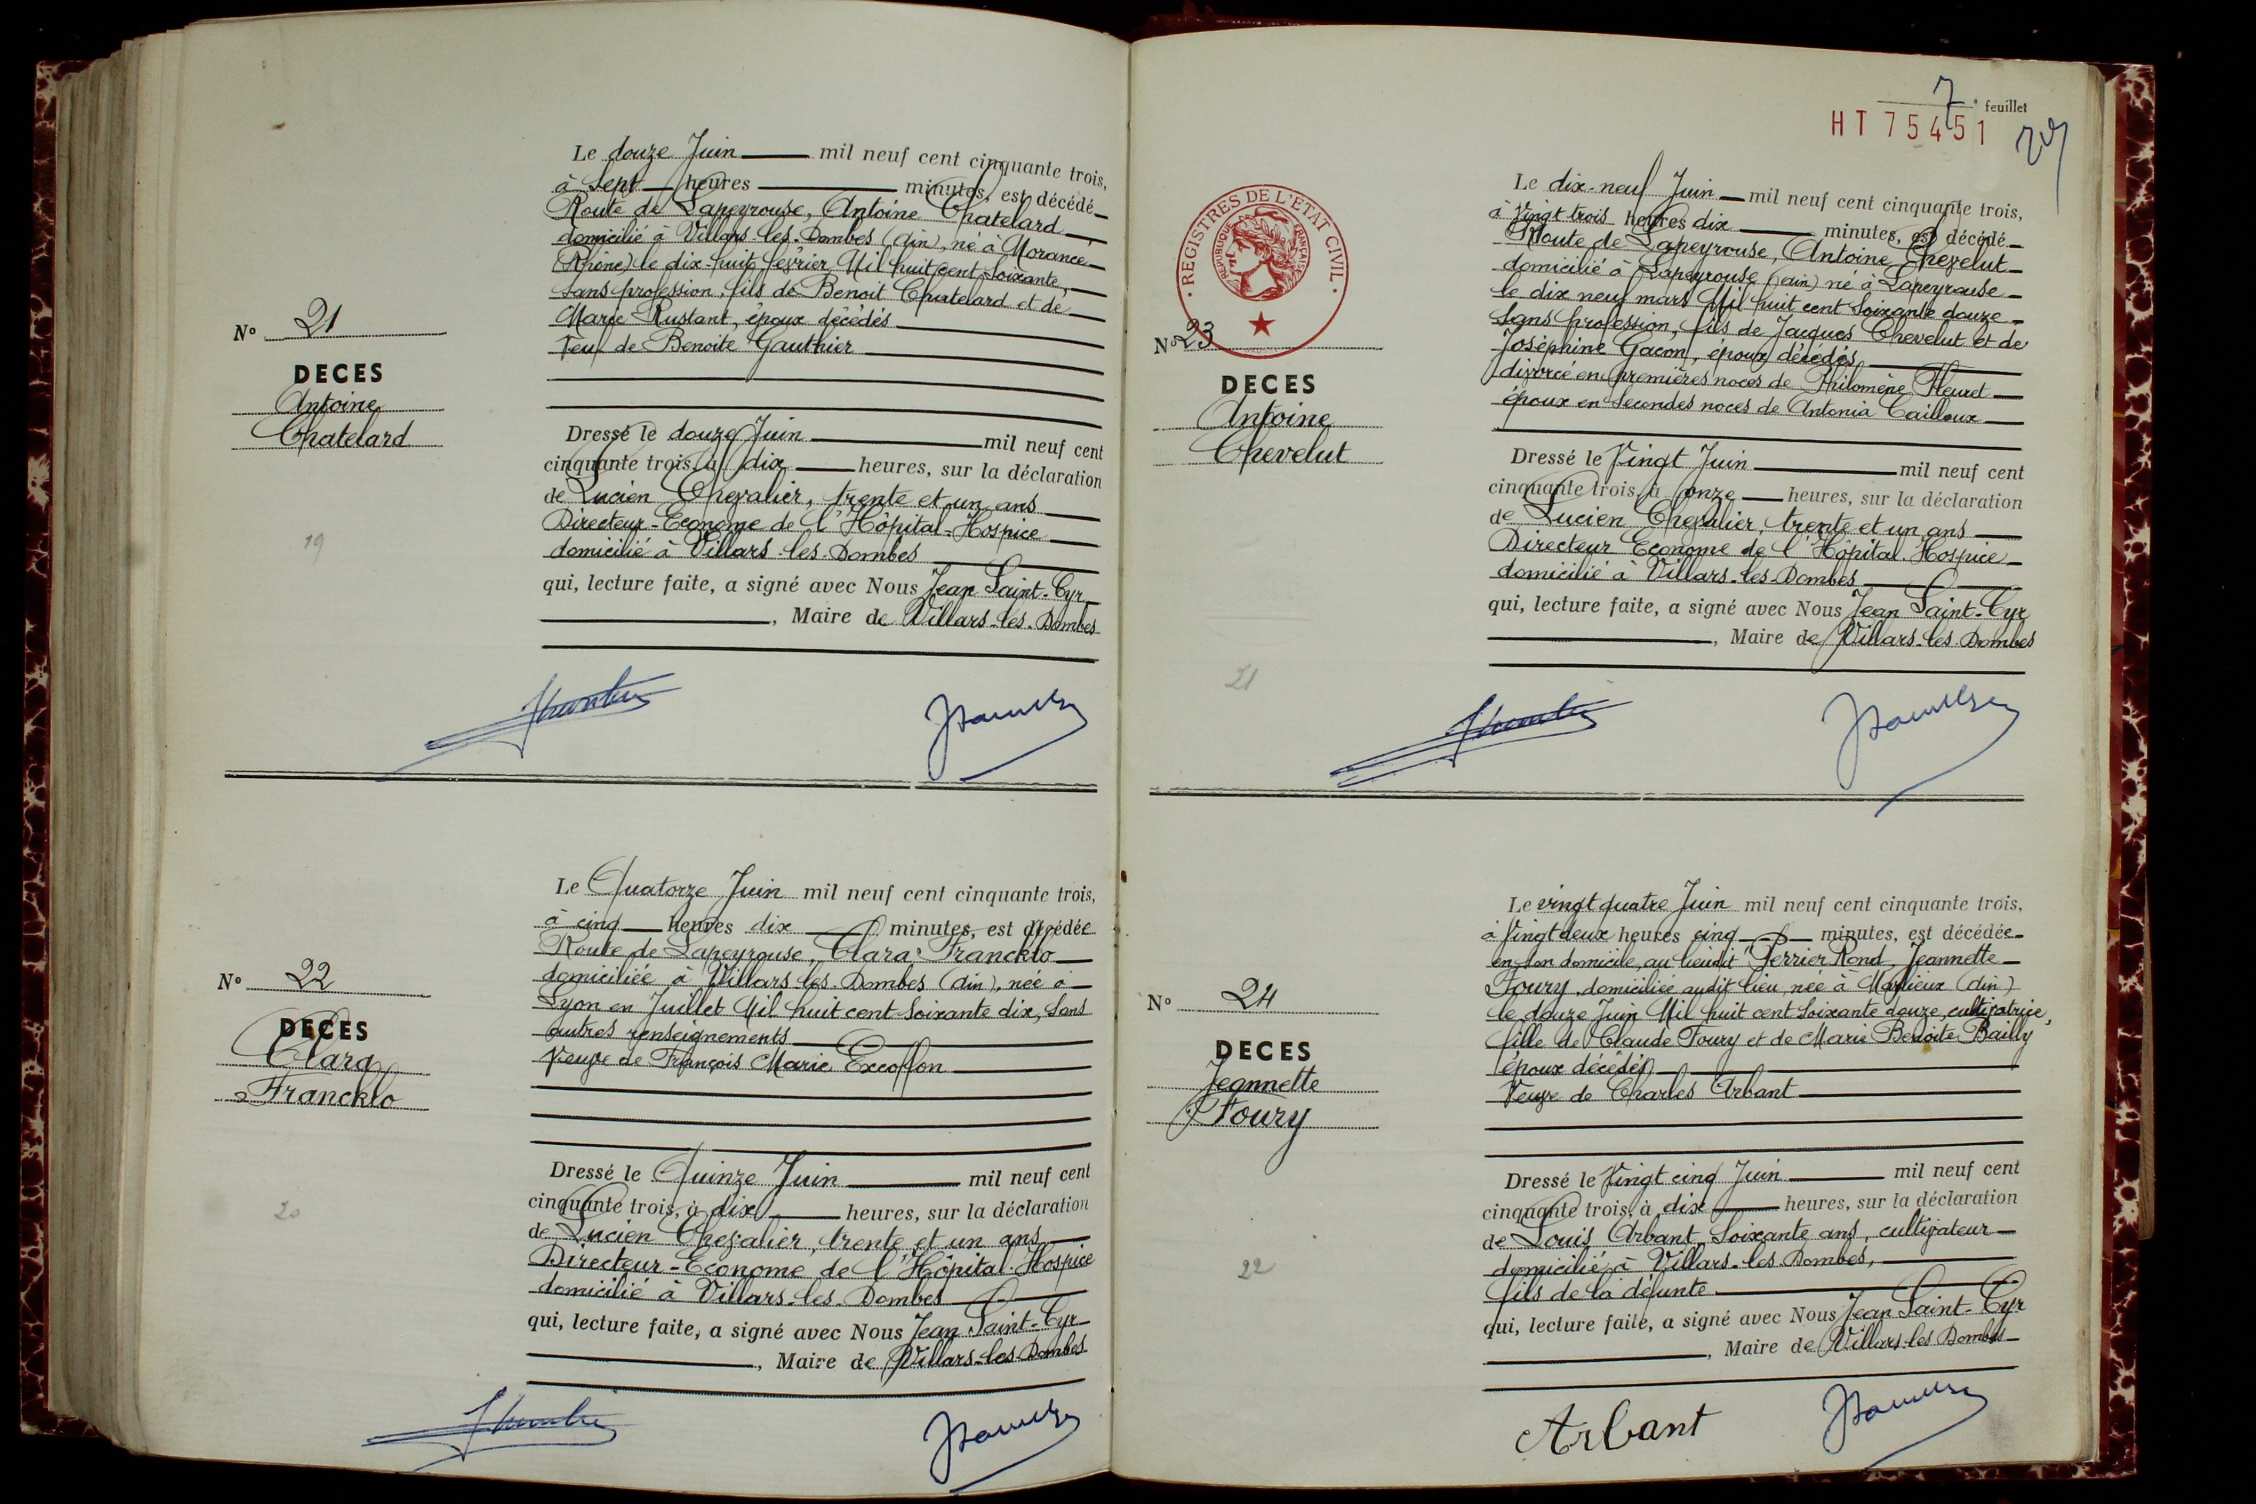 N° 21
DECES
Antoine
Chatelard
19
Le douze Juin mil neuf cent cinquante trois,
à Sept heures minutes, est décédé
Route de Lapeyrouse, Antoine Chatelard
domicilié à Villars-les-Dombes (Ain), né à Morancé
(Rhône) le dix-huit février Mil huit cent soixante,
sans profession, fils de Benoit Chatelard et de
Marie Rustant, époux décédés
Veuf de Benoite Gauthier
Dressé le douze Juin mil neuf cent
cinquante trois, à dix heures, sur la déclaration
de Lucien Chevalier, trente et un ans
Directeur-Econome de l'Hôpital-Hospice
domicilié à Villars-les-Dombes
qui, lecture faite, a signé avec Nous Jean Saint-Cyr
, Maire de Villars-les-Dombes
N° 22
DECES
Clara
Francklo
20
Le Quatorze Juin mil neuf cent cinquante trois,
à cinq heures dix minutes, est décédée
Route de Lapeyrouse, Clara Francklo
domiciliée à Villars-les-Dombes (Ain), née à
Lyon en Juillet Mil huit cent soixante dix, sans
autres renseignements
Veuve de François Marie Excoffon
Dressé le Quinze Juin mil neuf cent
cinquante trois, à dix heures, sur la déclaration
de Lucien Chevalier, trente et un ans
Directeur-Econome de l'Hôpital-Hospice
domicilié à Villars-les-Dombes
qui, lecture faite, a signé avec Nous Jean Saint-Cyr
, Maire de Villars-les-Dombes
7e feuillet
HT 75451
REGISTRES DE L'ETAT CIVIL
REPUBLIQUE FRANÇAISE
N° 23
DECES
Antoine
Chevelut
21
Le dix-neuf Juin mil neuf cent cinquante trois,
à Vingt trois heures dix minutes, est décédé
Route de Lapeyrouse, Antoine Chevelut
domicilié à Lapeyrouse (Ain) né à Lapeyrouse
le dix neuf mars Mil huit cent soixante douze
sans profession, fils de Jacques Chevelut et de
Joséphine Gacon, époux décédés
divorcé en premières noces de Philomène Fleuret
époux en secondes noces de Antonia Cailloux
Dressé le Vingt Juin mil neuf cent
cinquante trois, à onze heures, sur la déclaration
de Lucien Chevalier, trente et un ans
Directeur Econome de l'Hôpital-Hospice
domicilié à Villars-les-Dombes
qui, lecture faite, a signé avec Nous Jean Saint-Cyr
, Maire de Villars-les-Dombes
N° 24
DECES
Jeannette
Foury
22
Le vingt quatre Juin mil neuf cent cinquante trois,
à Vingt deux heures cinq minutes, est décédée
en son domicile, au lieudit "Perrier Rond, Jeannette
Foury, domiciliée audit lieu, née à Marlieux (Ain)
le douze Juin Mil huit cent soixante douze, cultivatrice,
fille de Claude Foury et de Marie Benoite Bailly
époux décédés
Veuve de Charles Arbant
Dressé le Vingt cinq Juin mil neuf cent
cinquante trois, à dix heures, sur la déclaration
de Louis Arbant, soixante ans, cultivateur
domicilié à Villars-les-Dombes,
fils de la défunte
qui, lecture faite, a signé avec Nous Jean Saint-Cyr
, Maire de Villars-les-Dombes
Arbant